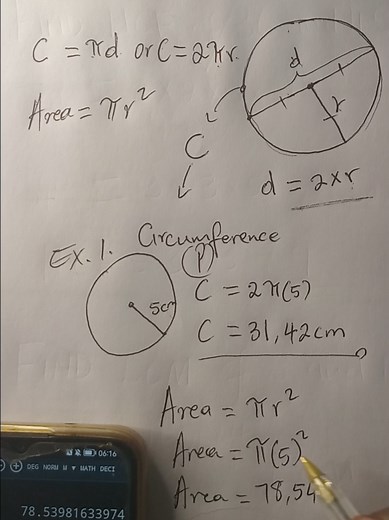 C = πd or C = 2πr
Area = πr²
d
r
C
d = 2×r
Ex. 1. Circumference
(P)
5cm
C = 2π(5)
C = 31,42cm
Area = πr²
Area = π(5)²
Area = 78,54
06:16
DEG NORM M ▼ MATH DECI
78.53981633974